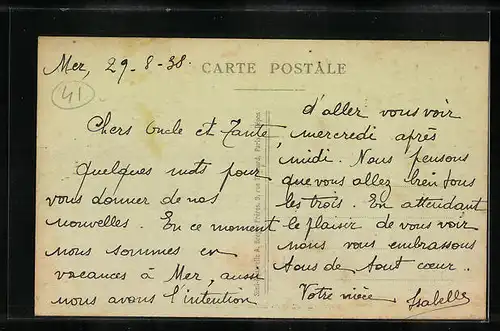 Mer, 29-8-38.
CARTE POSTALE
41
Chers Oncle et Tante,
Quelques mots pour
vous donner de nos
nouvelles. En ce moment
nous sommes en
vacances à Mer, aussi
nous avons l'intention
d'aller vous voir
mercredi après
midi. Nous pensons
que vous allez bien tous
les trois. En attendant
le plaisir de vous voir
nous vous embrassons
tous de tout cœur.
Votre nièce Isabelle